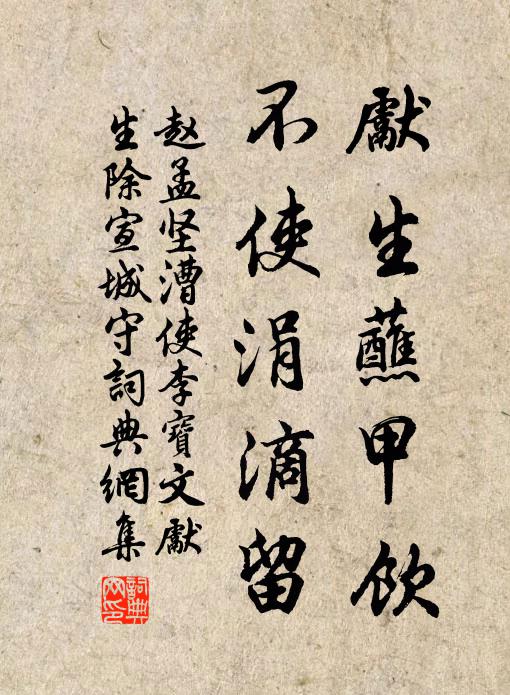 獻生蘸甲飲
不使涓滴留
赵孟坚漕使李寶文獻
生除宣城守詞典網集
詞典網印